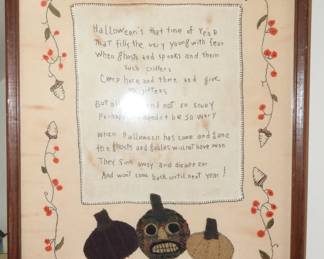 Halloween's that time of year
That fills the very young with fear
When ghosts and spooks and them
such critters
Creep here and there and give
jitters
But all and not so scary
needn't be so wary
When Halloween has come and gone
the ghosts and goblins will not have won
They sink away and disappear
And won't come back until next year!